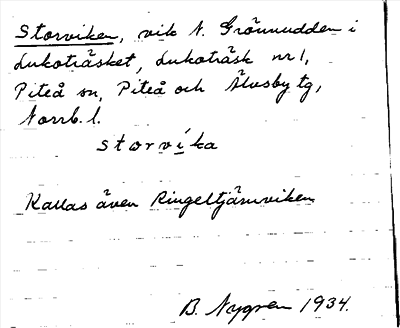 Storviken, vik N. Grönnudden i
Lukoträsket, Lukoträsk nr 1,
Piteå sn, Piteå och Älvsby tg,
Norrb. l.
storvika
Kallas även Ringeltjärnviken
B. Nygren 1934.